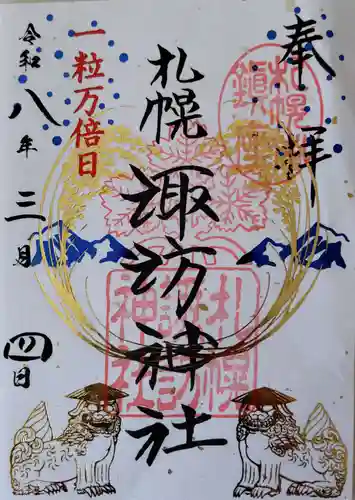 奉拝
札幌鎮座
札幌諏訪神社
札幌諏訪神社
一粒万倍日
令和八年三月四日